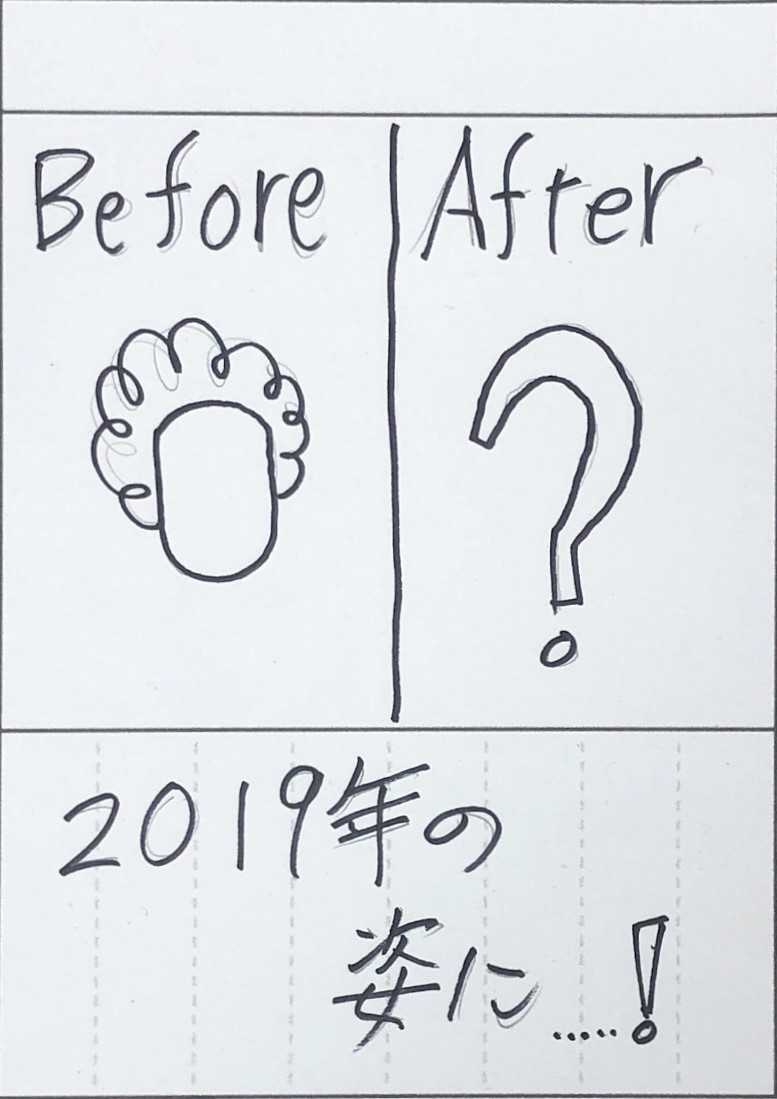 Before
After
?
2019年の
姿に.....!